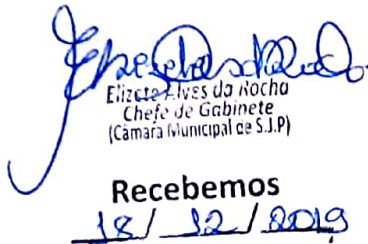 Elizete Alves da Rocha
Chefe de Gabinete
(Câmara Municipal de S.J.P)
Recebemos
18/ 12 / 2019